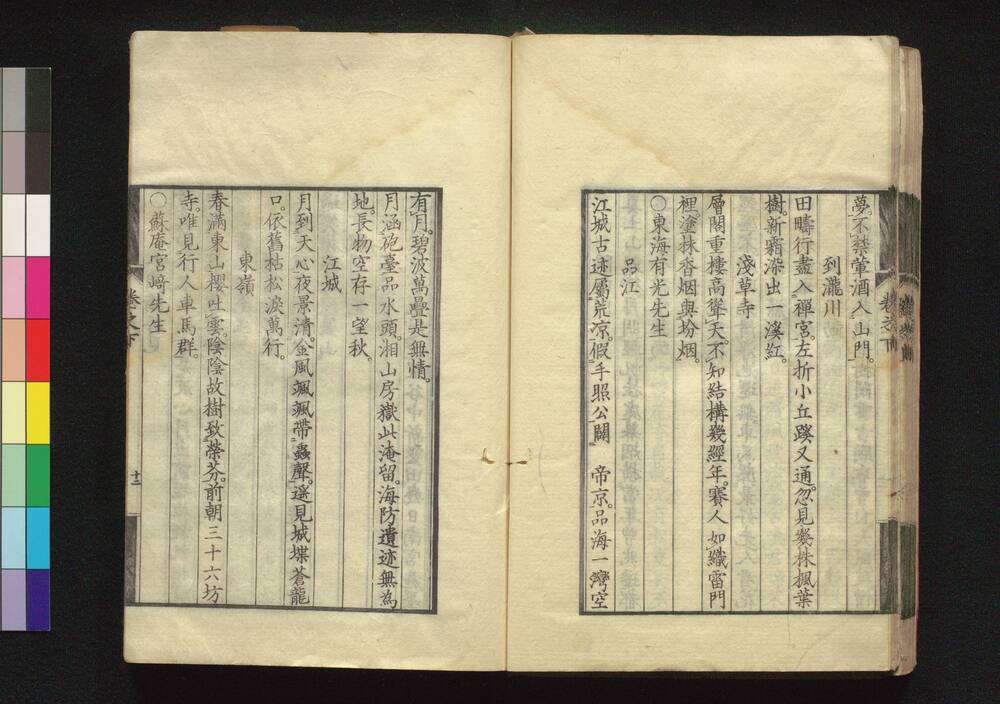 夢。不禁葷酒入山門。
到瀧川
田疇行盡入禪宮。左折小丘蹊又通。忽見幾株楓葉
樹。新霜染出一溪紅。
淺草寺
層閣重樓高聳天。不知結構幾經年。賽人如織雷門
裡。塗抹香烟與坋烟。
〇東海有光先生
品江
江城古迹屬荒凉。假手照公闢　帝京。品海一灣空
卷之下
有月。碧波萬疊是無情。
月涵砲臺品水頭。湘山房嶽此淹留。海防遺迹無為
地。長物空存一望秋。
江城
月到天心夜景清。金風颯颯帶蟲聲。遥見城堞蒼龍
口。依舊枯松淚萬行。
東嶺
春滿東山櫻吐雲。陰陰故樹致榮芬。前朝三十六坊
寺。唯見行人車馬群。
〇蘇庵宮﨑先生
卷之下
十二